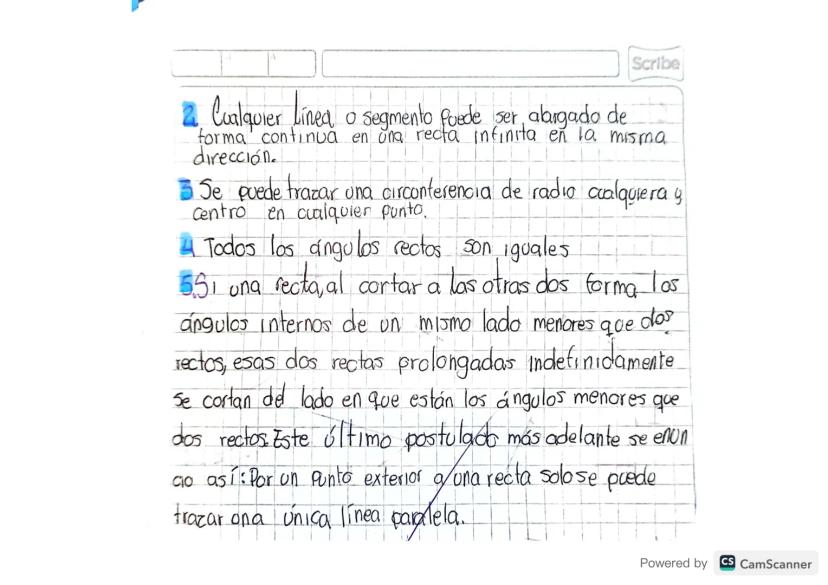 Scribe
2. Cualquier línea o segmento puede ser alargado de
forma continua en una recta infinita en la misma
dirección.
3 Se puede trazar una circonferencia de radio cualquiera y
centro en cualquier punto.
4 Todos los ángulos rectos son iguales
5.Si una recta, al cortar a las otras dos forma los
ángulos internos de un mismo lado menores que dos
rectos, esas dos rectas prolongadas indefinidamente
se cortan del lado en que están los ángulos menores que
dos rectos. Este último postulado más adelante se enun
cio así: Por un punto exterior a una recta solo se puede
trazar una única línea paralela.
Powered by CS CamScanner